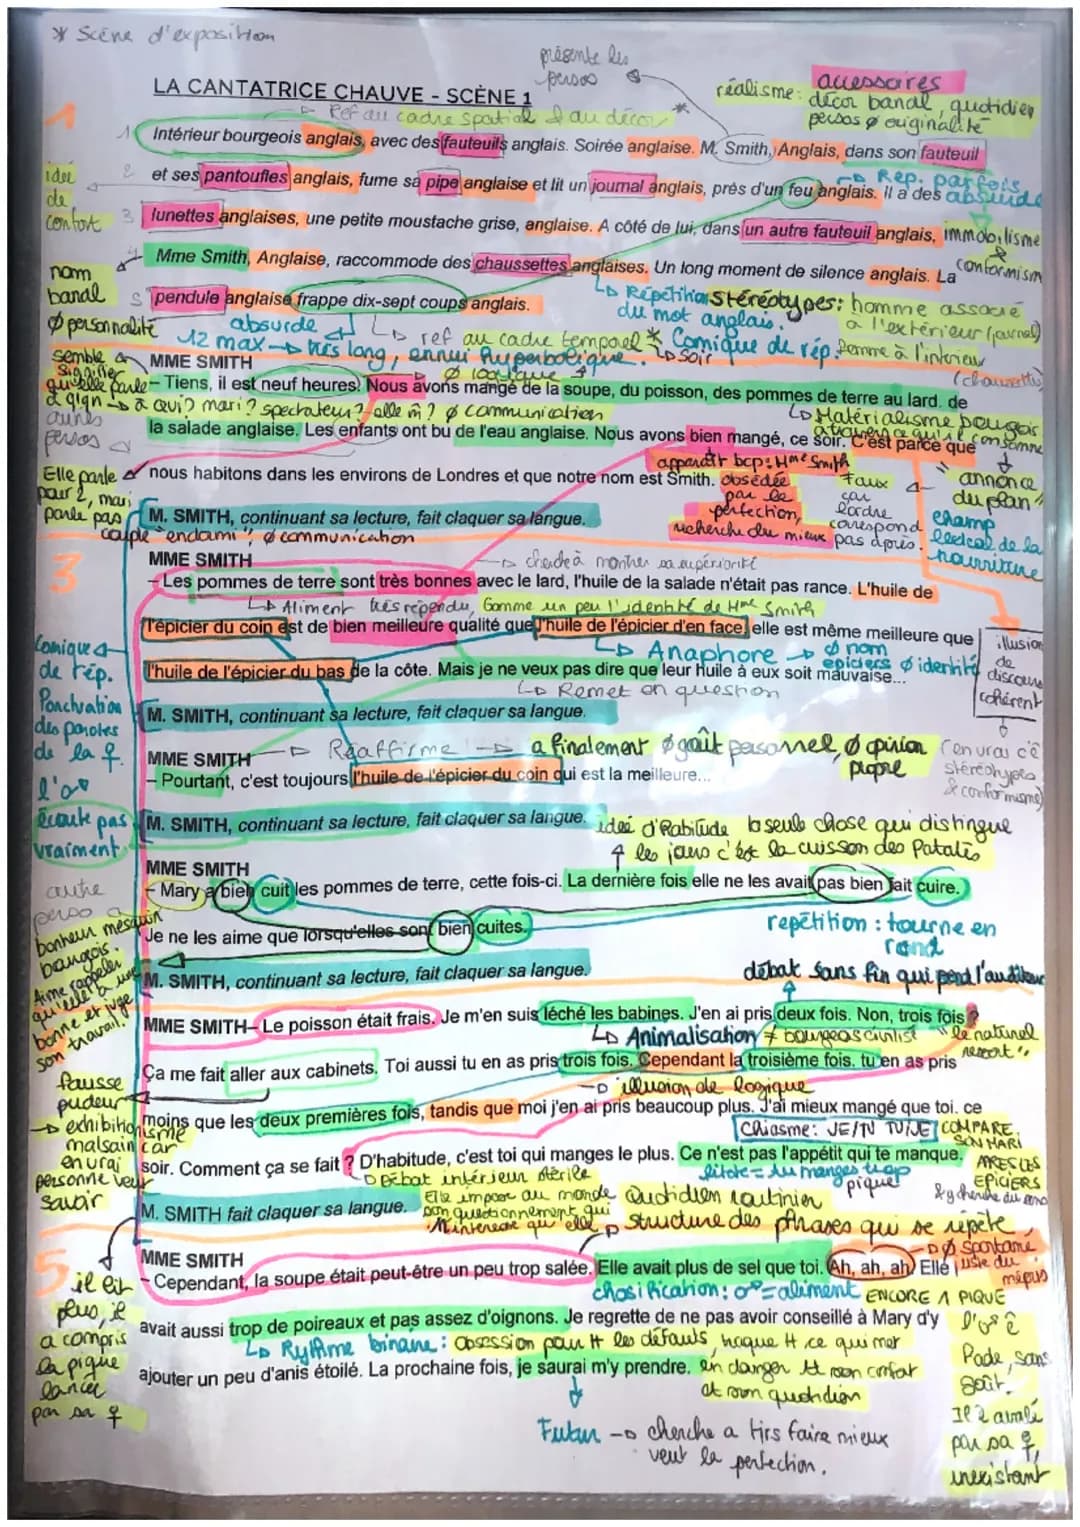 * Scène d'exposition
présente les
persos
LA CANTATRICE CHAUVE - SCÈNE 1
réalisme: accessoires
décor banal, quotidien
persos ø originalité
Ref au cadre spatial & au décor
1
1 Intérieur bourgeois anglais, avec des fauteuils anglais. Soirée anglaise. M. Smith, Anglais, dans son fauteuil
Rep. parfois
absurde
idée
de
confort
2 et ses pantoufles anglais, fume sa pipe anglaise et lit un journal anglais, près d'un feu anglais. il a des
3 lunettes anglaises, une petite moustache grise, anglaise. A côté de lui, dans un autre fauteuil anglais,
immobilisme
&
conformism
4 Mme Smith, Anglaise, raccommode des chaussettes anglaises. Un long moment de silence anglais. La
nom
banal
ø personnalité
5 pendule anglaise frappe dix-sept coups anglais.
Répétition
du mot anglais.
Stéréotypes: homme associé
à l'extérieur (journal)
Femme à l'intérieur
(chaussettes)
absurde
12 max → très long, ennui hyperbolique.
ref au cadre temporel *
soir
Comique de rép.
ø logique
MME SMITH
– Tiens, il est neuf heures. Nous avons mangé de la soupe, du poisson, des pommes de terre au lard. de
semble
signifier
qu'elle parle
à qlqn → à qui? mari? spectateur? elle m̂? ø communication
autres
persos
Matérialisme bourgeois
à travers ce qu'il consomme
la salade anglaise. Les enfants ont bu de l'eau anglaise. Nous avons bien mangé, ce soir. C'est parce que
apparaît bcp: Mme Smith
obsédée
par la
perfection,
recherche du mieux
Faux
car
l'ordre
correspond
pas après.
"annonce
du plan"
champ
lexical de la
nourriture
Elle parle
pour 2, mari
parle pas
nous habitons dans les environs de Londres et que notre nom est Smith.
M. SMITH, continuant sa lecture, fait claquer sa langue.
couple "endormi", ø communication
3
MME SMITH
cherche à montrer sa supériorité
– Les pommes de terre sont très bonnes avec le lard, l'huile de la salade n'était pas rance. L'huile de
Aliment très répendu, Comme un peu l'identité de Mme Smith
l'épicier du coin est de bien meilleure qualité que l'huile de l'épicier d'en face, elle est même meilleure que
Anaphore → ø nom
épiciers ø identité
illusion
de
discours
cohérent
(en vrai c'é
stéréotypes
& conformisme)
l'huile de l'épicier du bas de la côte. Mais je ne veux pas dire que leur huile à eux soit mauvaise...
Remet en question
Comique
de rép.
Ponctuation
des paroles
de la f.
écoute pas
vraiment
M. SMITH, continuant sa lecture, fait claquer sa langue.
MME SMITH
Réaffirme → a finalement ø goût personnel, ø opinion
propre
– Pourtant, c'est toujours l'huile de l'épicier du coin qui est la meilleure...
M. SMITH, continuant sa lecture, fait claquer sa langue.
idée d'habitude la seule chose qui distingue
les jours c'est la cuisson des Patates
MME SMITH
– Mary a bien cuit les pommes de terre, cette fois-ci. La dernière fois elle ne les avait pas bien fait cuire.
autre
perso
bonheur mesquin
bourgois.
Aime rappeler
qu'elle a une
bonne et juge
son travail.
Je ne les aime que lorsqu'elles sont bien cuites.
repétition : tourne en
rond
M. SMITH, continuant sa lecture, fait claquer sa langue.
débat sans fin qui perd l'auditeur
MME SMITH– Le poisson était frais. Je m'en suis léché les babines. J'en ai pris deux fois. Non, trois fois ?
Animalisation ≠ bourgeois civilisé
"le naturel
ressort"
Ça me fait aller aux cabinets. Toi aussi tu en as pris trois fois. Cependant la troisième fois. tu en as pris
illusion de logique
fausse
pudeur
→ exhibitionisme
malsain car
en vrai
personne veut
savoir
moins que les deux premières fois, tandis que moi j'en ai pris beaucoup plus. J'ai mieux mangé que toi. ce
Chiasme: JE/TU TU/JE
COMPARE
SON MARI
APRES LES
EPICIERS
soir. Comment ça se fait ? D'habitude, c'est toi qui manges le plus. Ce n'est pas l'appétit qui te manque.
Débat intérieur stérile
litote = tu manges trop
pique
M. SMITH fait claquer sa langue.
Elle impose au monde
son questionnement qui
n'intéresse qu'elle
Quotidien routinier
Structure des phrases qui se répète
5
MME SMITH
ø spontané
juste du
mépris
– Cependant, la soupe était peut-être un peu trop salée. Elle avait plus de sel que toi. Ah, ah, ah. Elle
chosification: ♂ = aliment
ENCORE 1 PIQUE
il lit
plus, il
a compris
la pique
lancée
par sa ♀
avait aussi trop de poireaux et pas assez d'oignons. Je regrette de ne pas avoir conseillé à Mary d'y
Rythme binaire: obsession pour tt les défauts, traque tt ce qui met
ajouter un peu d'anis étoilé. La prochaine fois, je saurai m'y prendre.
en danger tt son confort
et son quotidien
Fade, sans
goût.
Il é avalé
par sa ♀,
inexistant
Futur → cherche a tjrs faire mieux
veut la perfection.